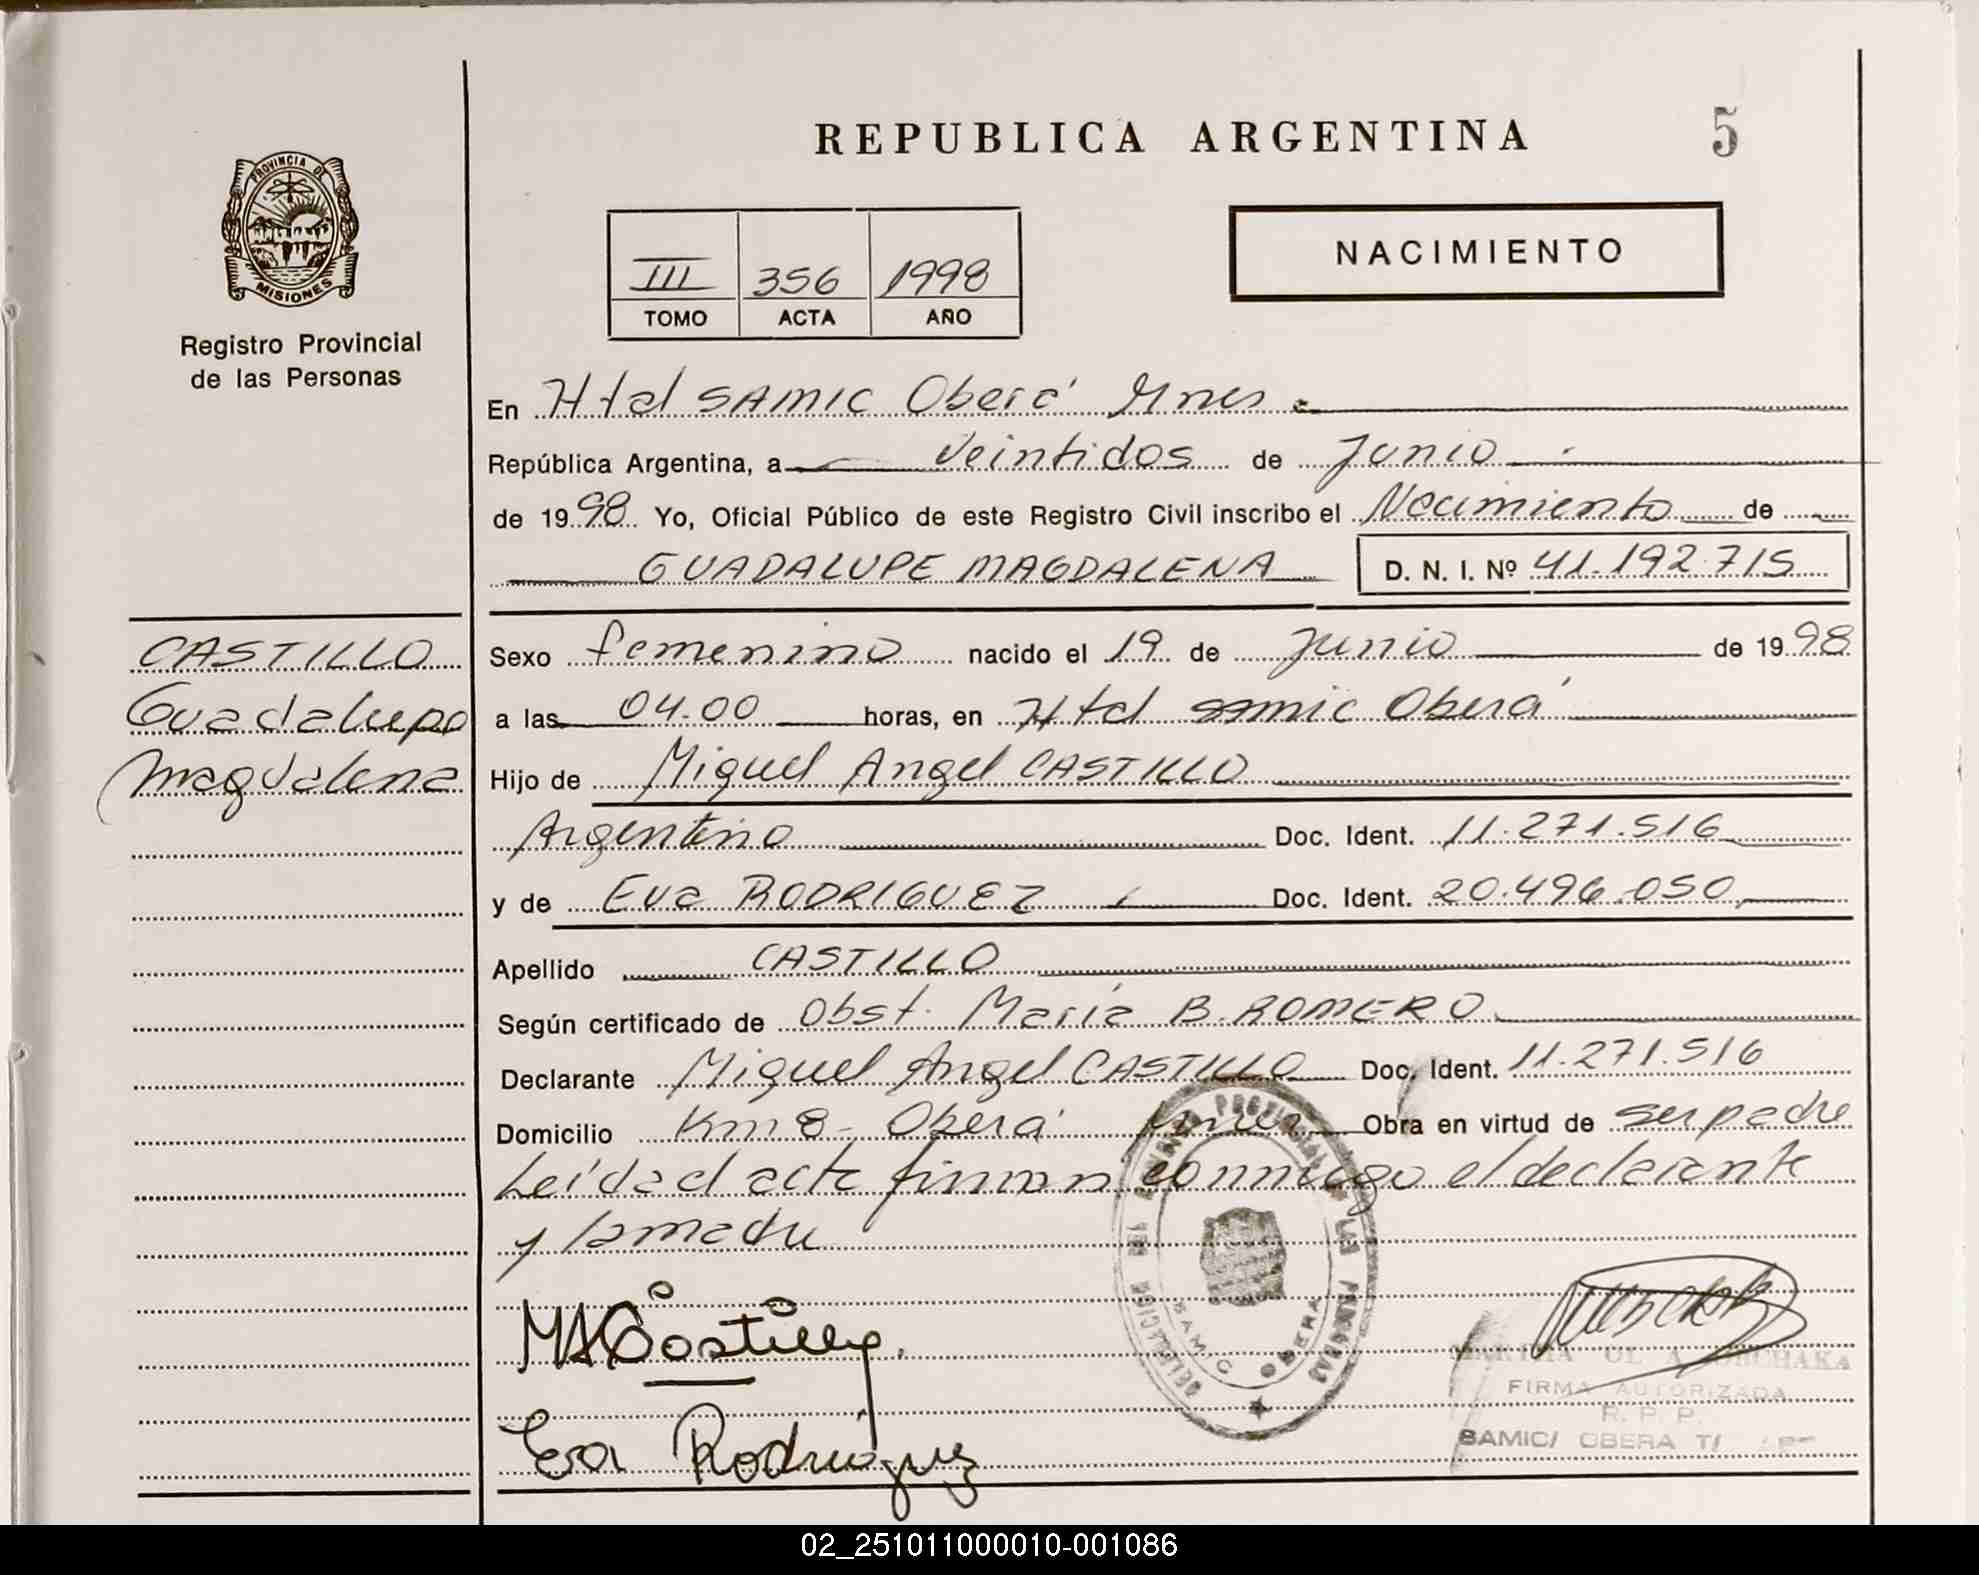 REPUBLICA ARGENTINA
5
PROVINCIA DE
MISIONES
Registro Provincial
de las Personas
NACIMIENTO
III 356 1998
TOMO ACTA AÑO
En Htal SAMIC Oberá Mnes
República Argentina, a veintidos de Junio
de 1998 Yo, Oficial Público de este Registro Civil inscribo el Nacimiento de
GUADALUPE MAGDALENA D. N. I. Nº 41.192.715
CASTILLO
Guadalupe
Magdalena
Sexo femenino nacido el 19 de Junio de 1998
a las 04.00 horas, en Htal Samic Oberá
Hijo de Miguel Angel CASTILLO
Argentino Doc. Ident. 11.271.516
y de Eva RODRIGUEZ Doc. Ident. 20.496.050
Apellido CASTILLO
Según certificado de Obst. María B. ROMERO
Declarante Miguel Angel CASTILLO Doc. Ident. 11.271.516
Domicilio Km 8 - Oberá Mnes Obra en virtud de ser padre
Leída el acta firman conmigo el declarante
y la madre
MACastillo.
Eva Rodriguez
SAMIC OBERA
FIRMA AUTORIZADA
R. P. P.
SAMIC/ OBERA
02_251011000010-001086